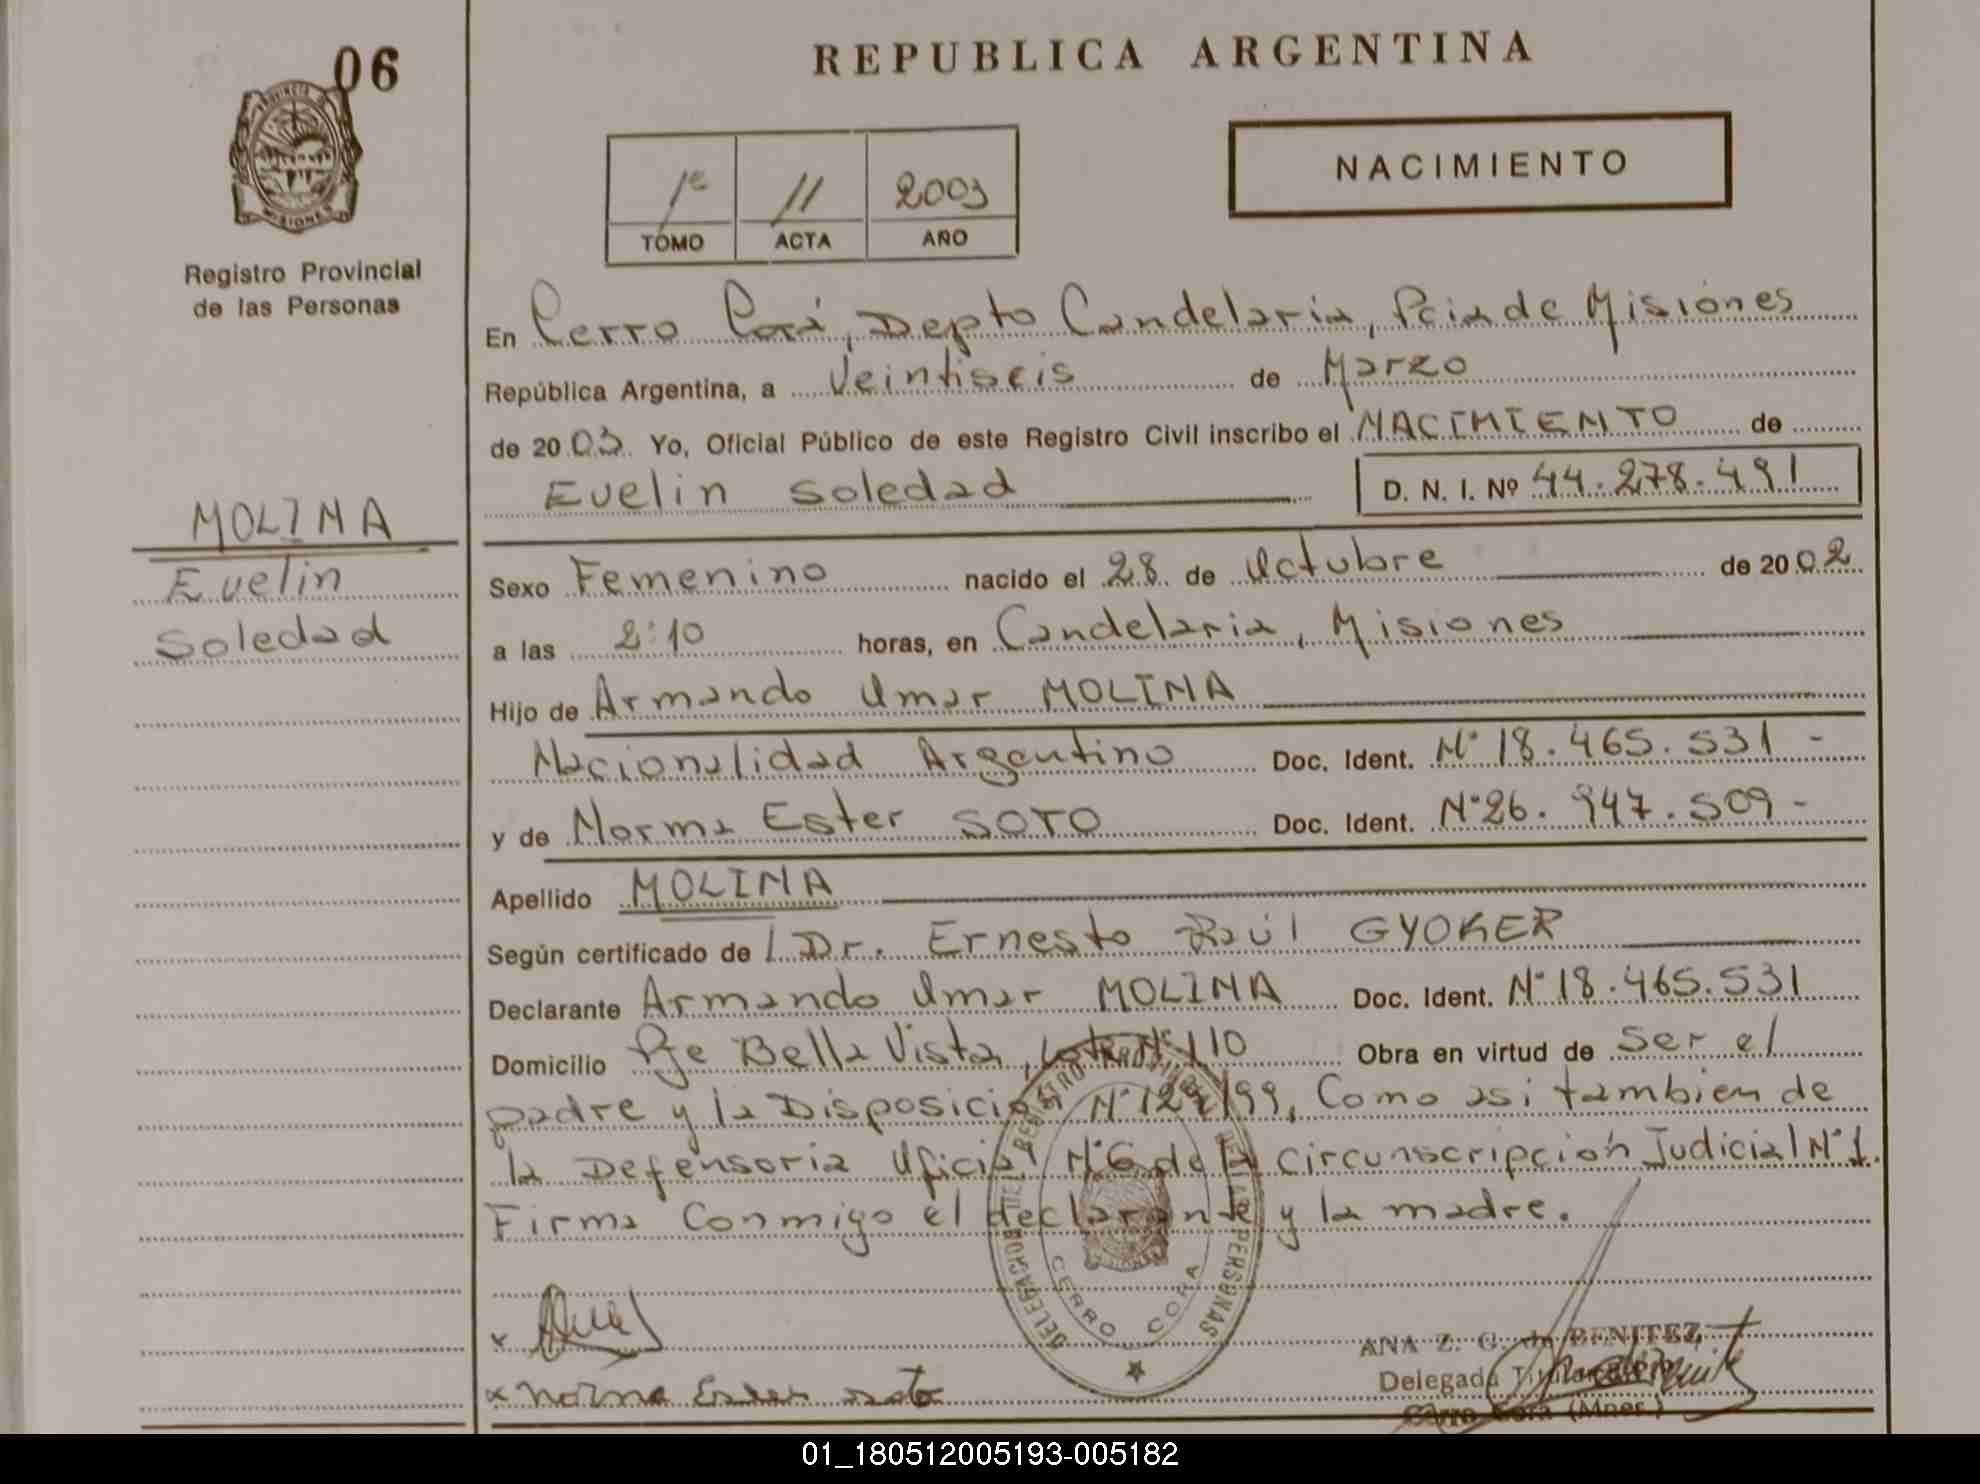 06
REPUBLICA ARGENTINA
PROVINCIA DE MISIONES
Registro Provincial
de las Personas
1º 11 2003
TOMO ACTA AÑO
NACIMIENTO
En Cerro Corá, Depto Candelaria, Pcia de Misiones
República Argentina, a Veintiseis de Marzo
de 2003. Yo, Oficial Público de este Registro Civil inscribo el NACIMIENTO de
Evelin Soledad D. N. I. Nº 44.278.491
MOLINA
Evelin
Soledad
Sexo Femenino nacido el 28 de Octubre de 2002
a las 2:10 horas, en Candelaria, Misiones
Hijo de Armando Omar MOLINA
Nacionalidad Argentino Doc. Ident. Nº 18.465.531 -
y de Norma Ester SOTO Doc. Ident. Nº 26.947.509 -
Apellido MOLINA
Según certificado de l Dr. Ernesto Raúl GYOKER
Declarante Armando Omar MOLINA Doc. Ident. Nº 18.465.531
Domicilio Pje Bella Vista, Lote Nº 110 Obra en virtud de ser el
padre y la Disposición Nº /99, Como asi tambien de
la Defensoria Oficial Nº 6 de la circunscripción Judicial Nº 1.
Firma Conmigo el declarante y la madre.
DELEGACION DEL REGISTRO PROVINCIAL DE LAS PERSONAS
CERRO CORA
x
x Norma Ester soto
ANA Z. G. de BENITEZ
Delegada Titular
Cerro Corá (Mnes.)
01_180512005193-005182